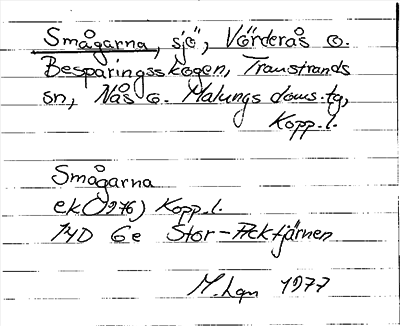 Smågarna, sjö, Vörderås o.
Besparingsskogen, Transtrands
sn, Nås o. Malungs doms.tg,
Kopp.l.
Smågarna
ek (1976) Kopp.l.
14D 6e Stor-Acktjärnen
M. Lgn 1977